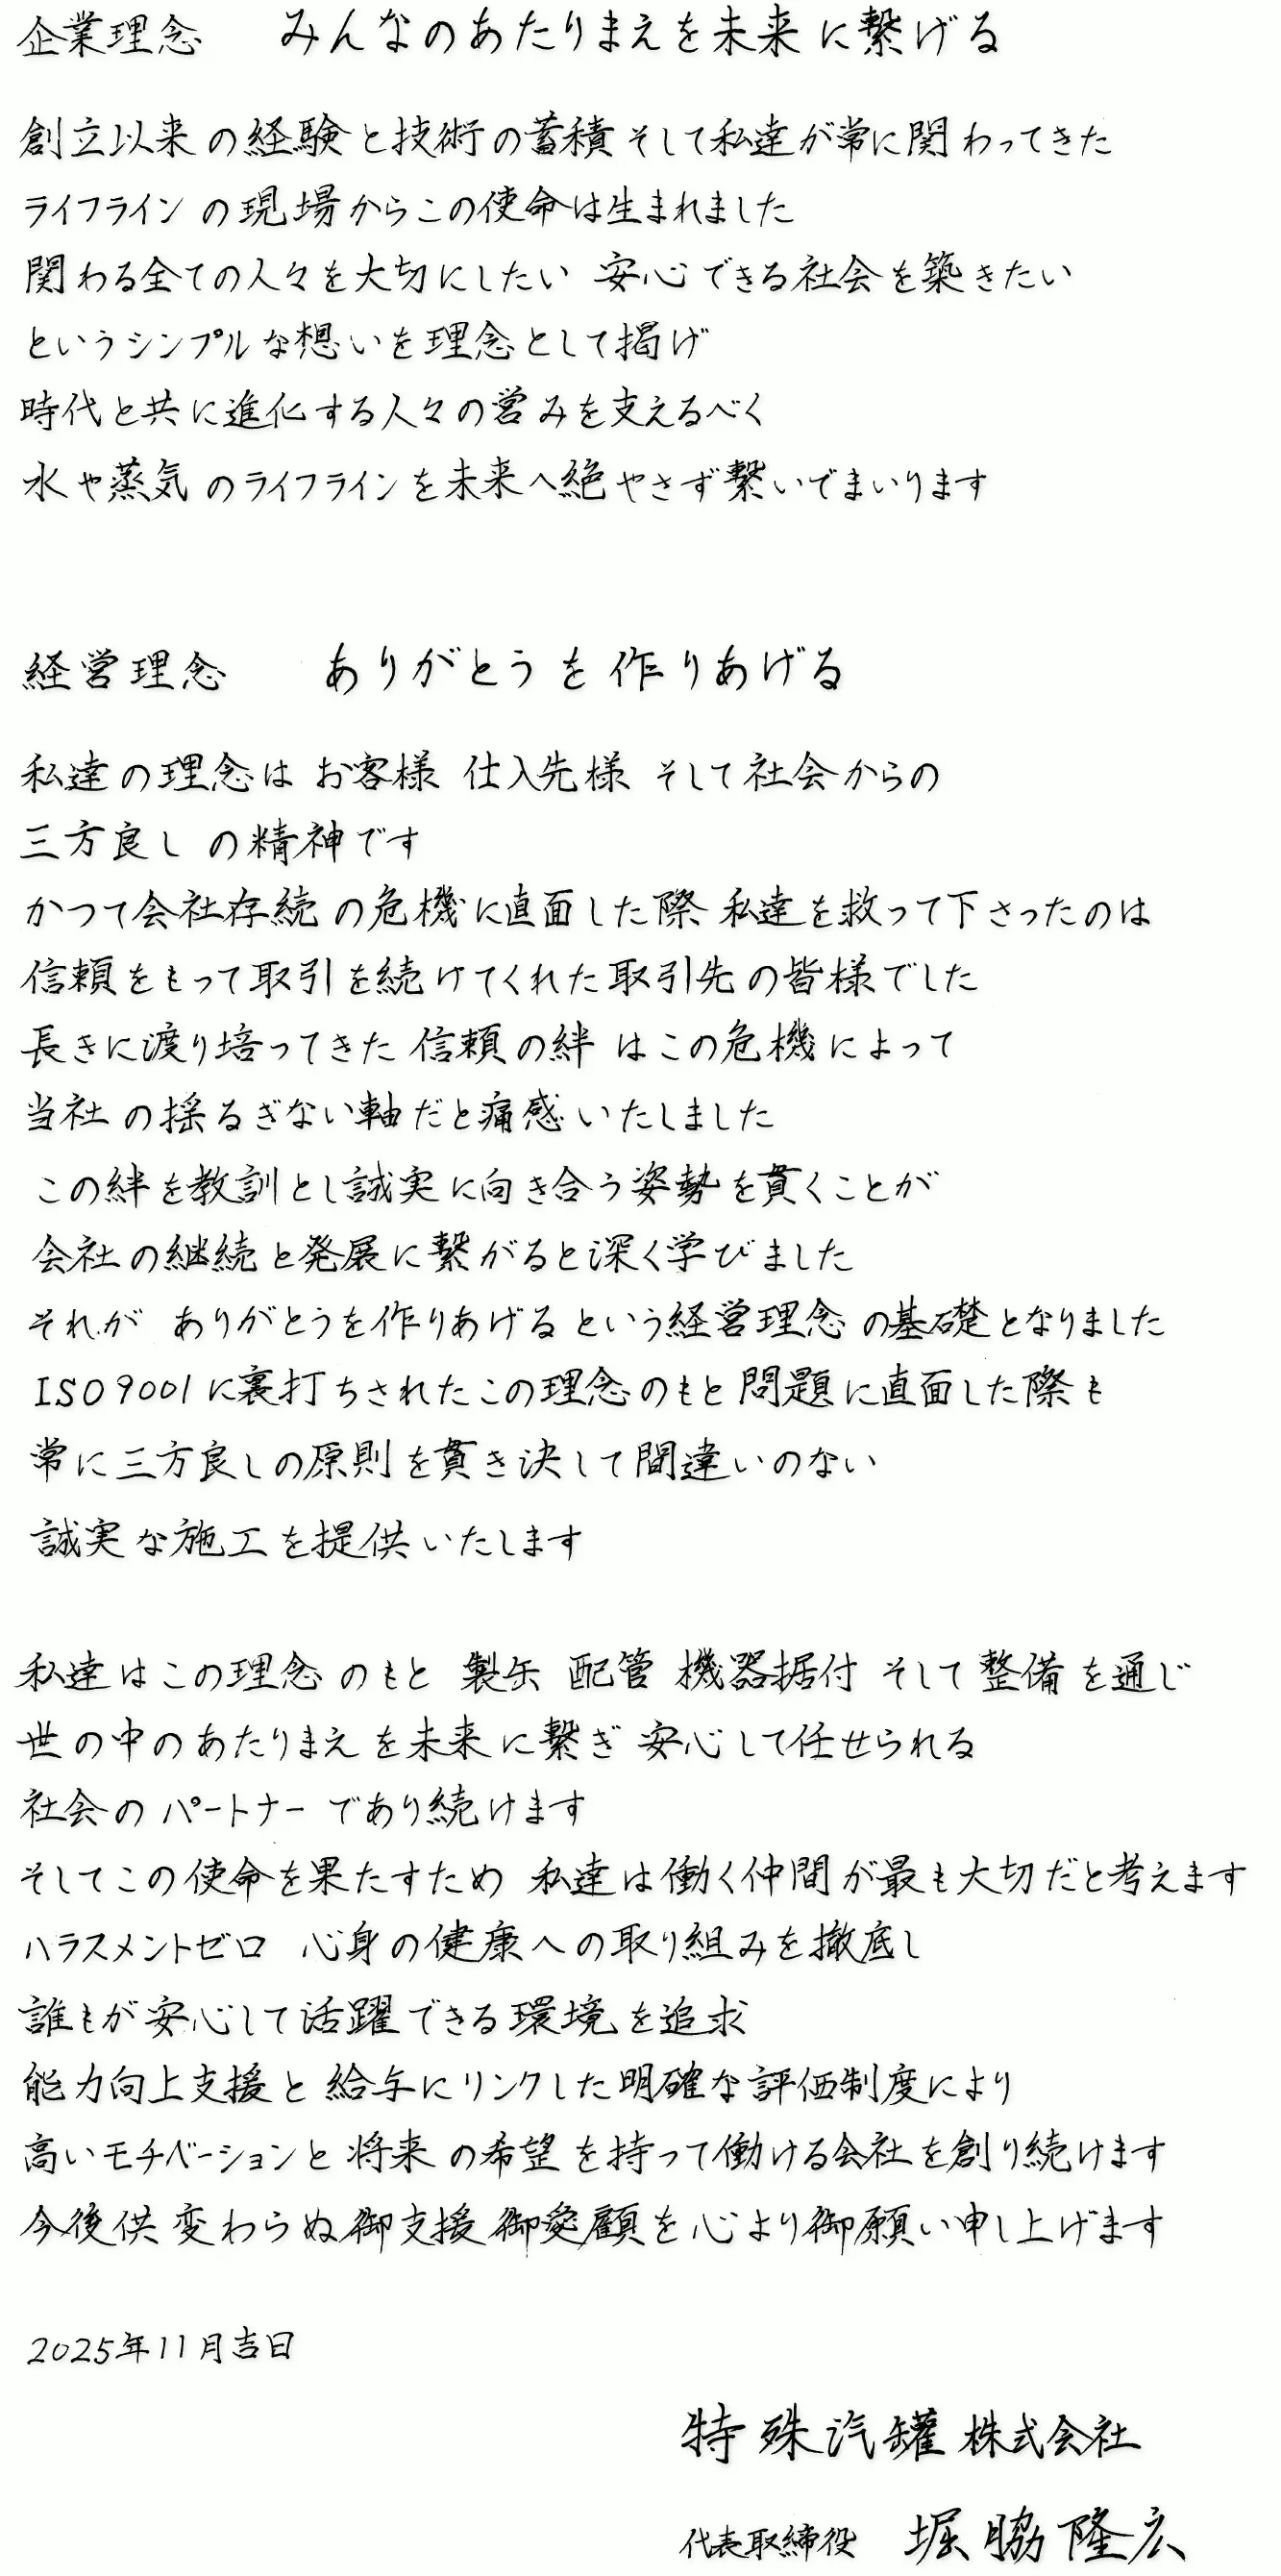 企業理念　みんなのあたりまえを未来に繋げる
創立以来の経験と技術の蓄積そして私達が常に関わってきた
ライフラインの現場からこの使命は生まれました
関わる全ての人々を大切にしたい 安心できる社会を築きたい
というシンプルな想いを理念として掲げ
時代と共に進化する人々の営みを支えるべく
水や蒸気のライフラインを未来へ絶やさず繋いでまいります
経営理念　ありがとうを作りあげる
私達の理念は お客様 仕入先様 そして社会からの
三方良しの精神です
かつて会社存続の危機に直面した際 私達を救って下さったのは
信頼をもって取引を続けてくれた取引先の皆様でした
長きに渡り培ってきた信頼の絆はこの危機によって
当社の揺るぎない軸だと痛感いたしました
この絆を教訓とし誠実に向き合う姿勢を貫くことが
会社の継続と発展に繋がると深く学びました
それが ありがとうを作りあげるという経営理念の基礎となりました
ISO9001に裏打ちされたこの理念のもと問題に直面した際も
常に三方良しの原則を貫き決して間違いのない
誠実な施工を提供いたします
私達はこの理念のもと 製缶 配管 機器据付 そして整備を通じ
世の中のあたりまえを未来に繋ぎ 安心して任せられる
社会のパートナーであり続けます
そしてこの使命を果たすため 私達は働く仲間が最も大切だと考えます
ハラスメントゼロ 心身の健康への取り組みを撤底し
誰もが安心して活躍できる環境を追求
能力向上支援と給与にリンクした明確な評価制度により
高いモチベーションと将来の希望を持って働ける会社を創り続けます
今後供変わらぬ御支援御愛顧を心より御願い申し上げます
2025年11月吉日
特殊汽罐株式会社
代表取締役 堀脇隆広